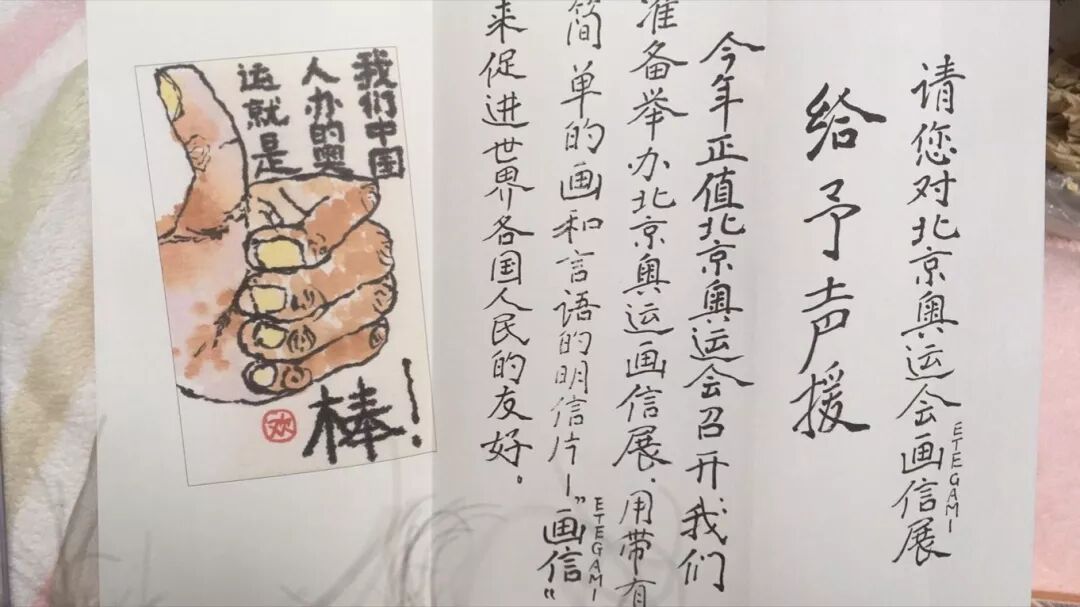 请您对北京奥运会画信展
ETEGAMI
给予声援
今年正值北京奥运会召开我们
准备举办北京奥运画信展,用带有
简单的画和言语的明信片—"画信"
ETEGAMI
来促进世界各国人民的友好。
我们中国
人办的奥
运就是
棒!
欢